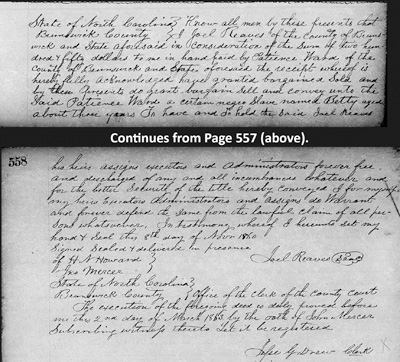 State of North Carolina } Know all men by these presents that
Brunswick County } I Joel Reaves of the County of Bruns-
wick and State aforesaid in Consideration of the Sum of two hun
dred & fifty dollars to me in hand paid by Patience Ward of the
County of Brunswick and State aforesaid the receipt whereof is
hereby fully acknowledged have granted bargained Sold and
by these presents do grant bargain Sell and convey unto the
Said Patience Ward a certain negro Slave named Betty aged
about three years To have and to hold the Said Joel Reaves
Continues from Page 557 (above).
558
his heirs assigns executors and Administrators forever free
and discharged of any and all incumbrances whatever and
for the better Security of the title hereby Conveyed I for myself
my heirs Executors Administrators and assigns do Warrant
and forever defend the Same from the lawful Claim of all per-
sons whatsoever. In testimony whereof I hereunto set my
hand & Seal this 8th day of Novr 1860
Signed Sealed & delivered in presence
of H N Howard } Joel Reaves Seal
Jno Mercer }
State of North Carolina }
Brunswick County } Office of the Clerk of the County Court
The execution of the foregoing deed is duly proved before
me this 2nd day of March 1863 by the oath of John Mercer
Subscribing witness thereto Let it be registered
Clerk